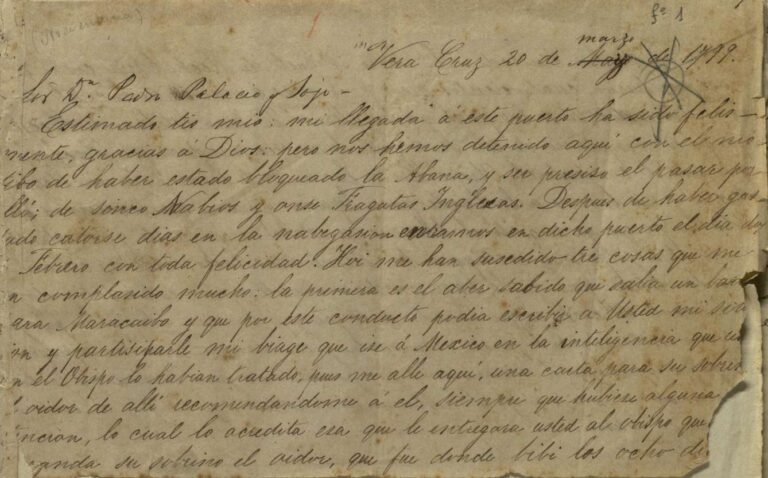 fº 1
marzo
Vera Cruz 20 de Mayo de 1799.
Sor Dn. Pedro Palacio y Sojo –
Estimado tio mio: mi llegada á este puerto ha sido felis–
mente, gracias á Dios: pero nos hemos detenido aquí con el mo
tibo de haber estado bloqueado la Abana, y ser presiso el pasar por
allá; de sinco Nabios y onse Fragatas Inglesas. Despues de haber gas
tado catorse dias en la nabegasion entramos en dicho puerto el dia dos
Febrero con toda felicidad. Hoi me han susedido tre cosas que me
n complasido mucho: la premera es el aber sabido que salia un bar
ara Maracaibo y que por este conducto podia escribir á Usted mi situa
on y partisiparle mi biage que ise á Mexico en la inteligencia que us
n el Obispo lo habian tratado, pues me allé aquí, una carta para su sobrino
l oidor de alli recomendandome á el, siempre que hubiese alguna
encion, lo cual lo acredita esa que le entregara usted al obispo que
anda su sobrino el oidor, que fue donde bibí los ocho di